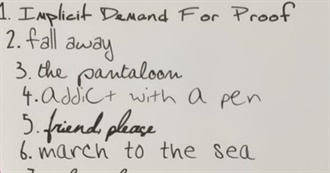 1. Implicit Demand For Proof
2. fall away
3. the pantaloon
4. addict with a pen
5. friend, please
6. march to the sea